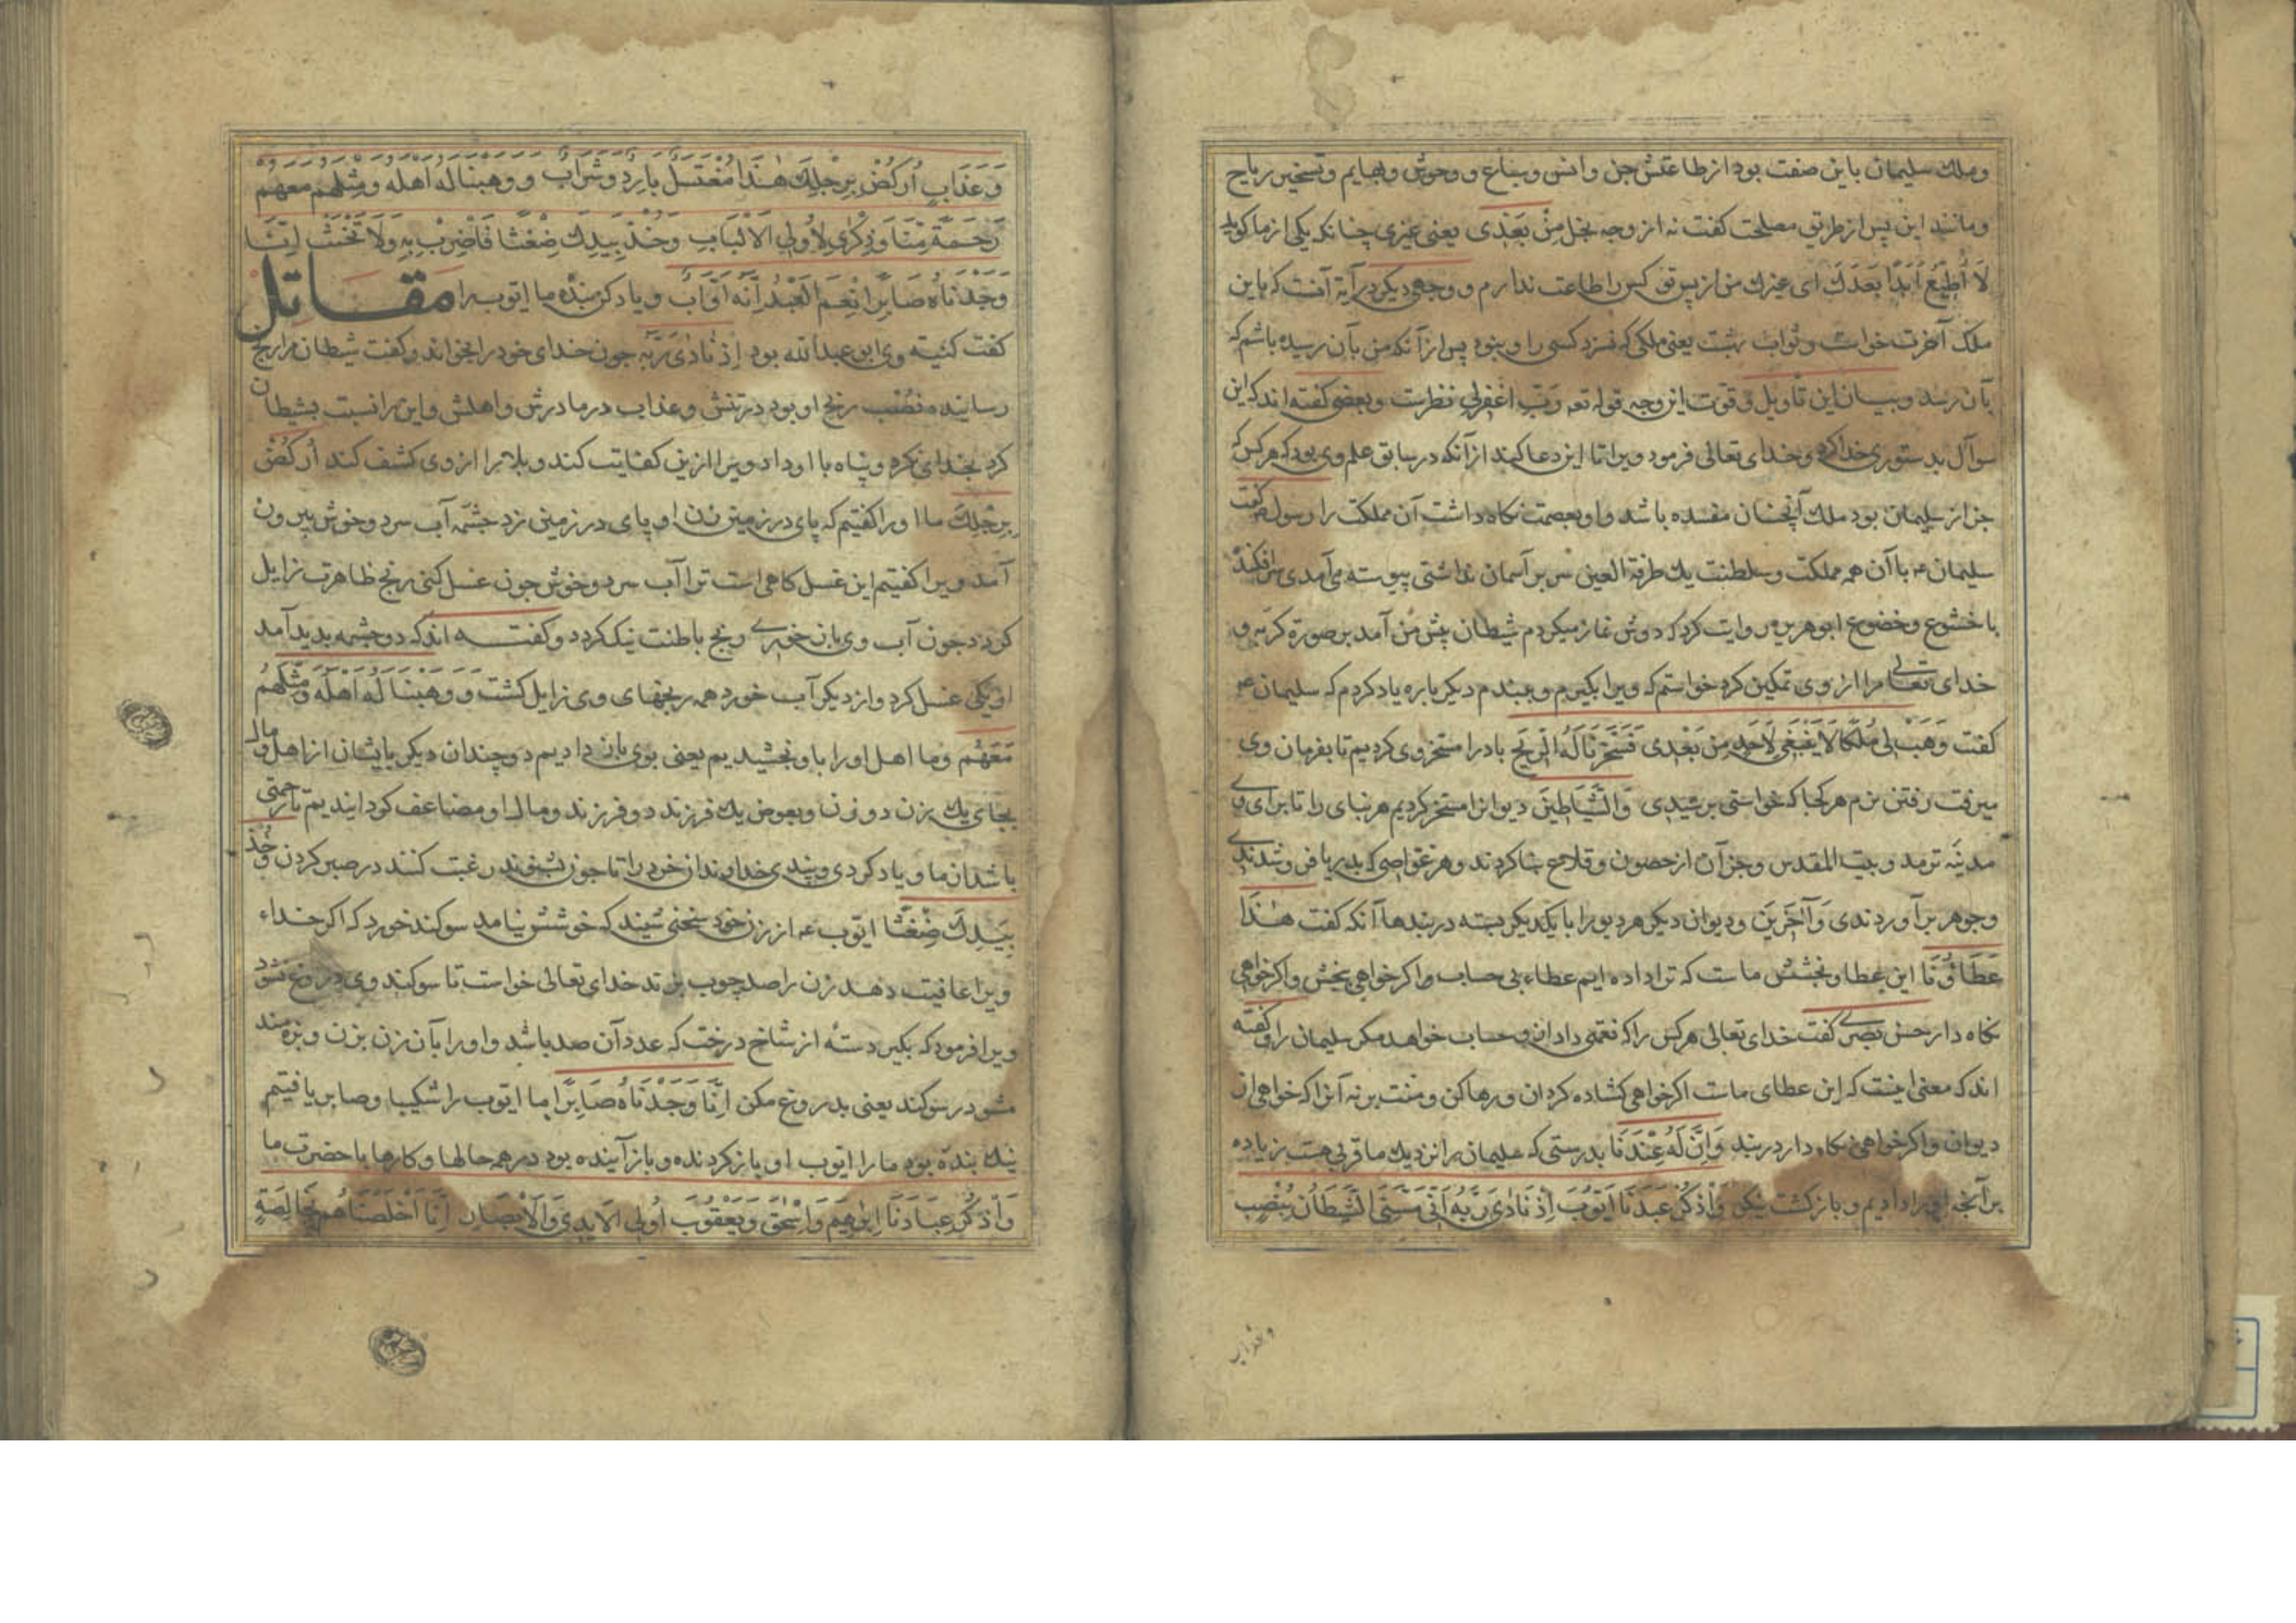 وملك سلیمان باین صفت بود از طاعتش جن وانس وسباع و وحوش وبهایم وتسخیر ریاح
ومانند این پس از طریق مصلحت کفت نه از وجه بخل مِنْ بَعْدی یعنی غیری چنانکه یکی از ما کوید
لَا أُطِیعُ أَبَدًا بَعْدَكَ ای غیرك من از پس تو کس را طاعت ندارم و وجهی دیکر در آیة آنست که باین
ملک آخرت خواست وثواب بهشت یعنی ملکی که نسزد کسی را و نبود پس از آنکه من بآن رسیده باشم که
بآن رسد وبیان این تاویل وقوت این وجه قوله تعه رَبِّ اغْفِرلی نظرست وبعضی کفته اند که این
سوآل بدستوری خدا کرد وخدای تعالی فرمود ویرا تا این دعا کند از آنکه در سابق علم وی بود که هر کس که
جز از سلیمان بود ملك آنچنان مفسده باشد واو بعصمت نکاه داشت آن مملکت را رسول کفت
سلیمان ع با آن همه مملکت وسلطنت یك طرفة العین سر بر آسمان نداشتی پیوسته می آمدی سر افکنده
با خشوع وخضوع ابوهریره روایت کرد که دوش نماز میکردم شیطان پیش من آمد بر صورة کربه و
خدای تعالی مرا از وی تمکین کرد خواستم که ویرا بکیرم و ببندم دیکر باره یاد کردم که سلیمان ع
کفت وَهَبْ لی مُلْکًا لَا یَنْبَغی لِأَحَدٍ مِنْ بَعْدی فَسَخَّرْنَا لَهُ الرّیحَ باد را مسخر وی کردیم تا بفرمان وی
میرفت رفتن نرم هر کجا که خواستی برسیدی وَالشَّیَاطینَ دیوانرا مسخر کردیم هر بنای را تا برای وی
مدینه تومد وبیت المقدس وجز آن از حصون وقلاع بنا کردند وهر غواصی که بدریا فرو شدندی
وجوهر بر آوردندی وَآخَرینَ ودیوان دیکر هر دیو را با یکدیکر بسته در بندها آنکه کفت هٰذَا
عَطَاؤُنَا این عطا وبخشش ماست که ترا داده ایم عطاء بی حساب واکر خواهی ببخش واکر خواهی
نکاه دار حسن بصری کفت خدای تعالی هر کس را که نعمتی داد ازو حساب خواهد مکر سلیمان را وکفته
اند که معنی اینست که این عطای ماست اکر خواهی کشاده کردان ورها کن ومنت بر نه آنرا که خواهی از
دیوان واکر خواهی نکاه دار در بند وَاِنَّ لَهُ عِنْدَنَا بدرستی که سلیمان را نزدیك ما قربی هست بزیاده
بر آنجه او را دادیم و بازکشت نیکو وَاذْکُرْ عَبْدَنَا أَیُّوبَ اِذْ نَادٰی رَبَّهُ أَنّی مَسَّنِیَ الشَّیْطَانُ بِنُصْبٍ
وعذاب
وَعَذَابٍ أُرْکُضْ بِرِجْلِكَ هٰذَا مُغْتَسَلٌ بَارِدٌ وَشَرَابٌ و وَهبنا له اَهله ومِثلهم مَعَهُم
رَحمَةً مِنَّا وَذِکْرٰی لِأُولی الْأَلْبَابِ وَخُذْ بِیَدِكَ ضِغْثًا فَاضْرِبْ بِهِ وَلَا تَحْنَثْ اِنَّا
وَجَدْنَاهُ صَابِرًا نِعْمَ الْعَبْدُ اِنَّهُ أَوَّابٌ ویاد کن بنده ما ایوب را مقاتل
کفت کنیه وی ابو عبدالله بود اِذْ نَادٰی رَبَّه جون خدای خود را بخواند وکفت شیطان مرا رنج
رسانیده نُصْب رنج او بود در تنش وعذاب در مادرش واهلش واین را نسبت بشیطان
کرد بخدای نکرد وپناه با او داد ویرا ازین کفایت کند وبلا را از وی کشف کند أُرْکُضْ
بِرِجْلِكَ ما او را کفتیم که پای در زمین زن او پای در زمین زد چشمه آب سرد وخوش بیرون
آمد ویرا کفتیم این غسل کاهی است ترا آب سرد وخوش جون غسل کنی رنج ظاهرت زایل
کردد جون آب وی بان خوری رنج باطنت نیك کردد وکفته اند که دو چشمه بدید آمد
از یکی غسل کرد واز دیکر آب خورد همه رنجهای وی زایل کشت وَ وَهَبْنَا لَهُ أَهْلَهُ وَمِثْلَهُمْ
مَعَهُمْ وما اهل او را باو بخشیدیم یعنی بوی باز دادیم دو چندان دیکر بایشان از اهل ومال
بجای یك زن دو زن وبعوض یك فرزند دو فرزند ومال او مضاعف کردانیدیم تا رحمتی
باشد از ما ویاد کردی وپندی خداوندان خرد را تا جون بشنوند رغبت کنند در صبر کردن وَخُذْ
بِیَدِكَ ضِغْثًا ایوب ع از زن خود سخنی شنید که خوشش نیامد سوکند خورد که اکر خداء
ویرا عافیت دهد زن را صد چوب بزند خدای تعالی خواست تا سوکند وی دروغ نشود
ویرا فرمود که بکیر دسته از شاخ درخت که عدد آن صد باشد واو را بآن زن بزن وبزه مند
مشو در سوکند یعنی بدروغ مکن اِنَّا وَجَدْنَاهُ صَابِرًا ما ایوب را شکیبا وصابر یافتیم
نیك بنده بود ما را ایوب او باز کردنده وباز آینده بود در همه حالها وکارها با حضرت ما
وَاذْکُرْ عِبَادَنَا اِبْرٰهیمَ وَاِسْحٰقَ وَیَعْقُوبَ أُولی الْأَیْدی وَالْأَبْصَارِ اِنَّا أَخْلَصْنَاهُمْ بِخَالِصَةٍ